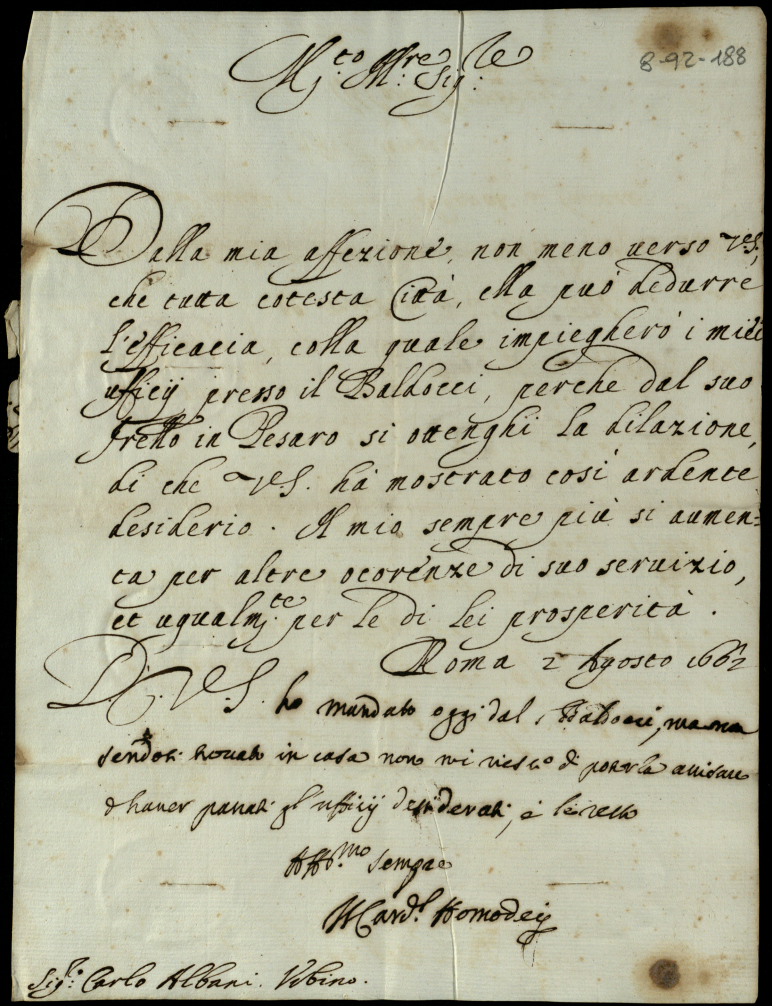 8-92-188
M.to Ill.re Sig.re
Dalla mia affezione, non meno verso V.S.,
che tutta cotesta Città, ella può dedurre
l'efficacia, colla quale impiegherò i miei
ufficij presso il Baldocci, perche dal suo
Frello in Pesaro si ottenghi la dilazione,
di che V.S. hà mostrato così ardente
desiderio. Il mio sempre più si aumen=
ta per altre ocorenze di suo servizio,
et ugualm.te per le di lei prosperità.
Roma 2 Agosto 1662
D. V.S. ho mandato oggi dal Baldocci, ma non
sendosi trovato in casa non mi riesce di poterla avisare
d'haver passati gl'ufficij desiderati, e le resto
Aff.mo sempre
Il Card.l Homodei
Sig.r Carlo Albani. Urbino.